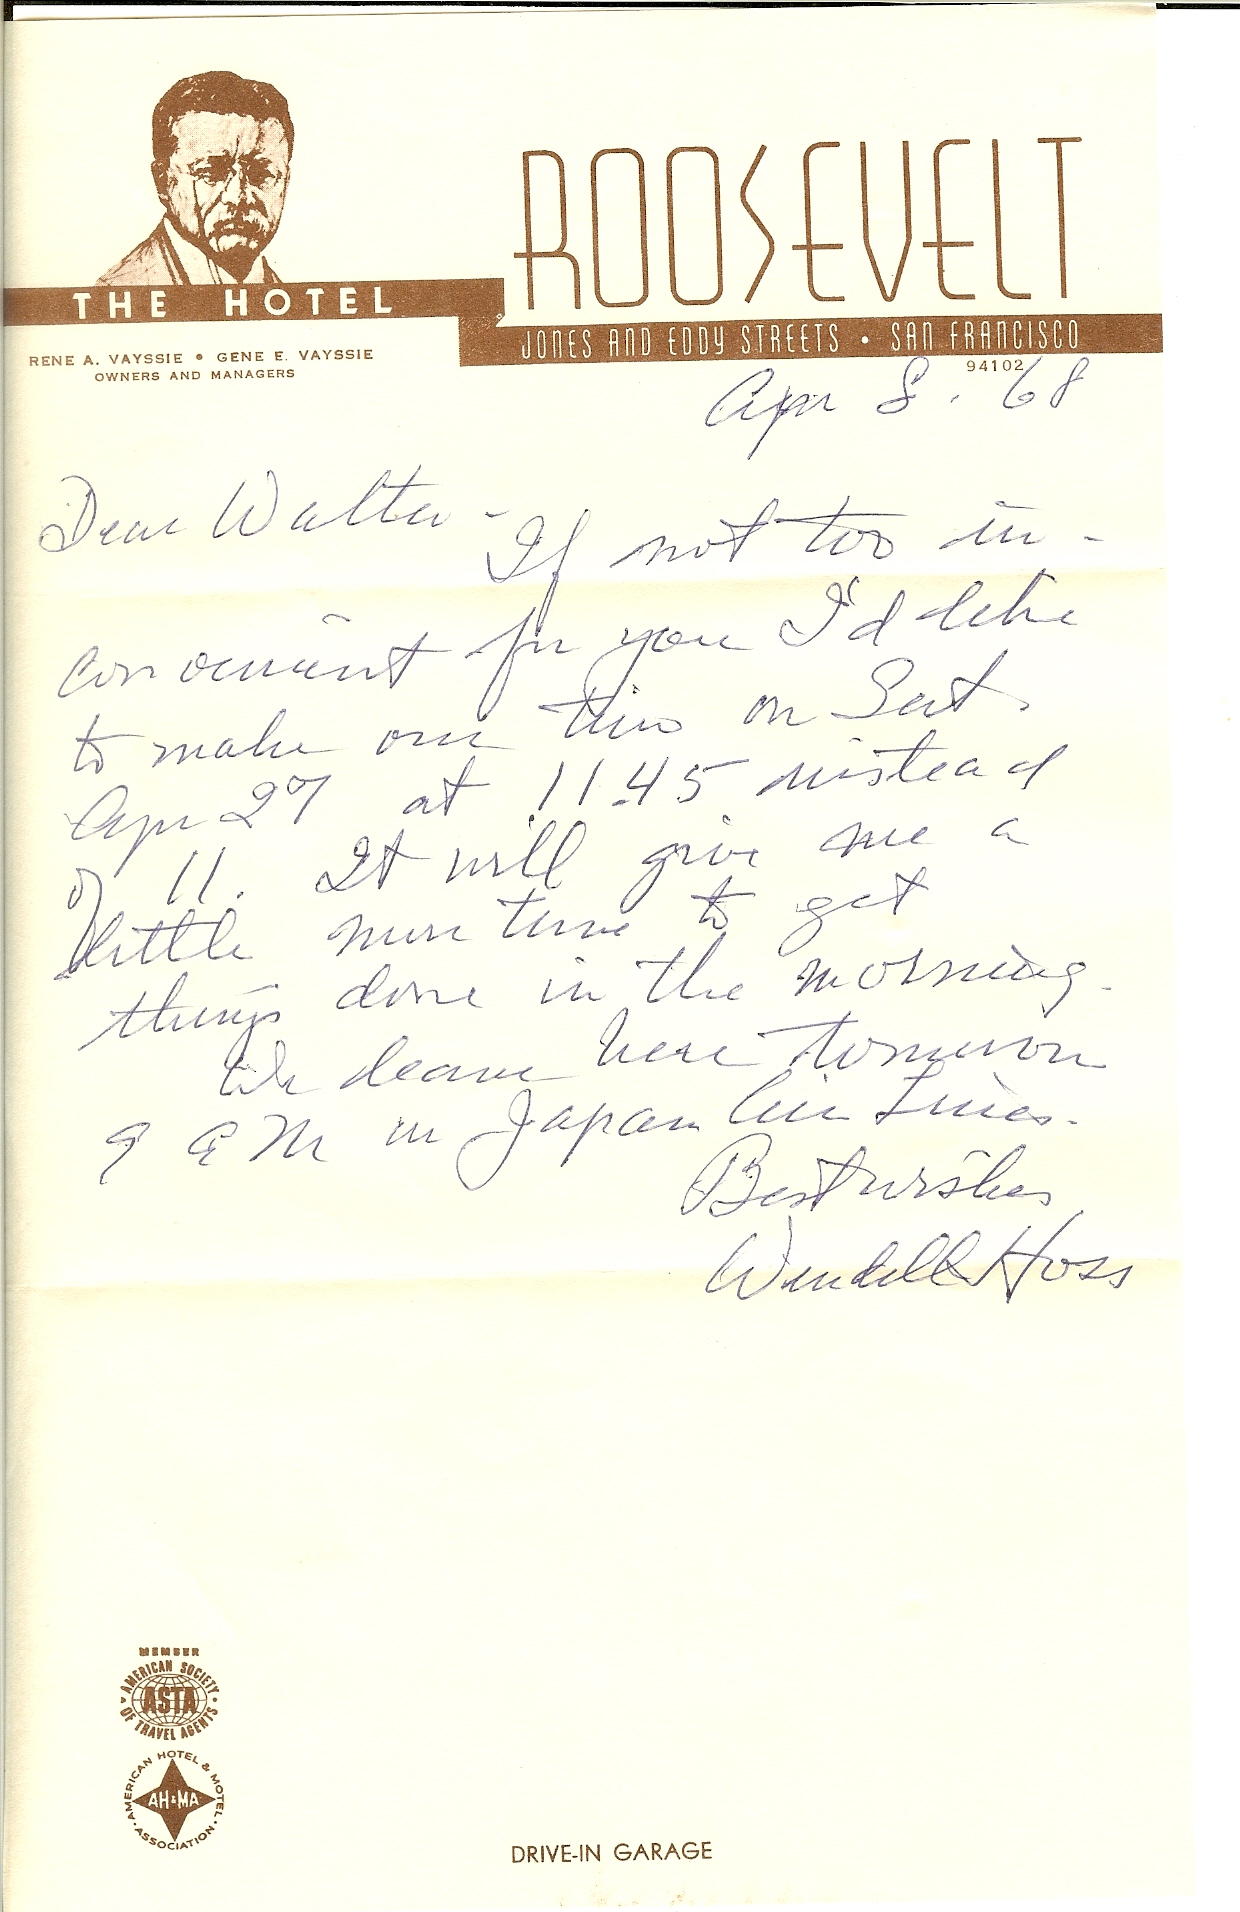 ROOSEVELT
THE HOTEL
JONES AND EDDY STREETS • SAN FRANCISCO
94102
RENE A. VAYSSIE • GENE E. VAYSSIE
OWNERS AND MANAGERS
Apr 8. 68
Dear Walter -
If not too in-
convenient for you I'd like
to make our time on Sat.
Apr 27 at 11.45 instead
of 11. It will give me a
little more time to get
things done in the morning.
We leave here tomorrow
9 AM in Japan Air Lines.
Best wishes
Wendell Hoss
MEMBER
AMERICAN SOCIETY
ASTA
OF TRAVEL AGENTS
AMERICAN HOTEL & MOTEL
AH&MA
ASSOCIATION
DRIVE-IN GARAGE